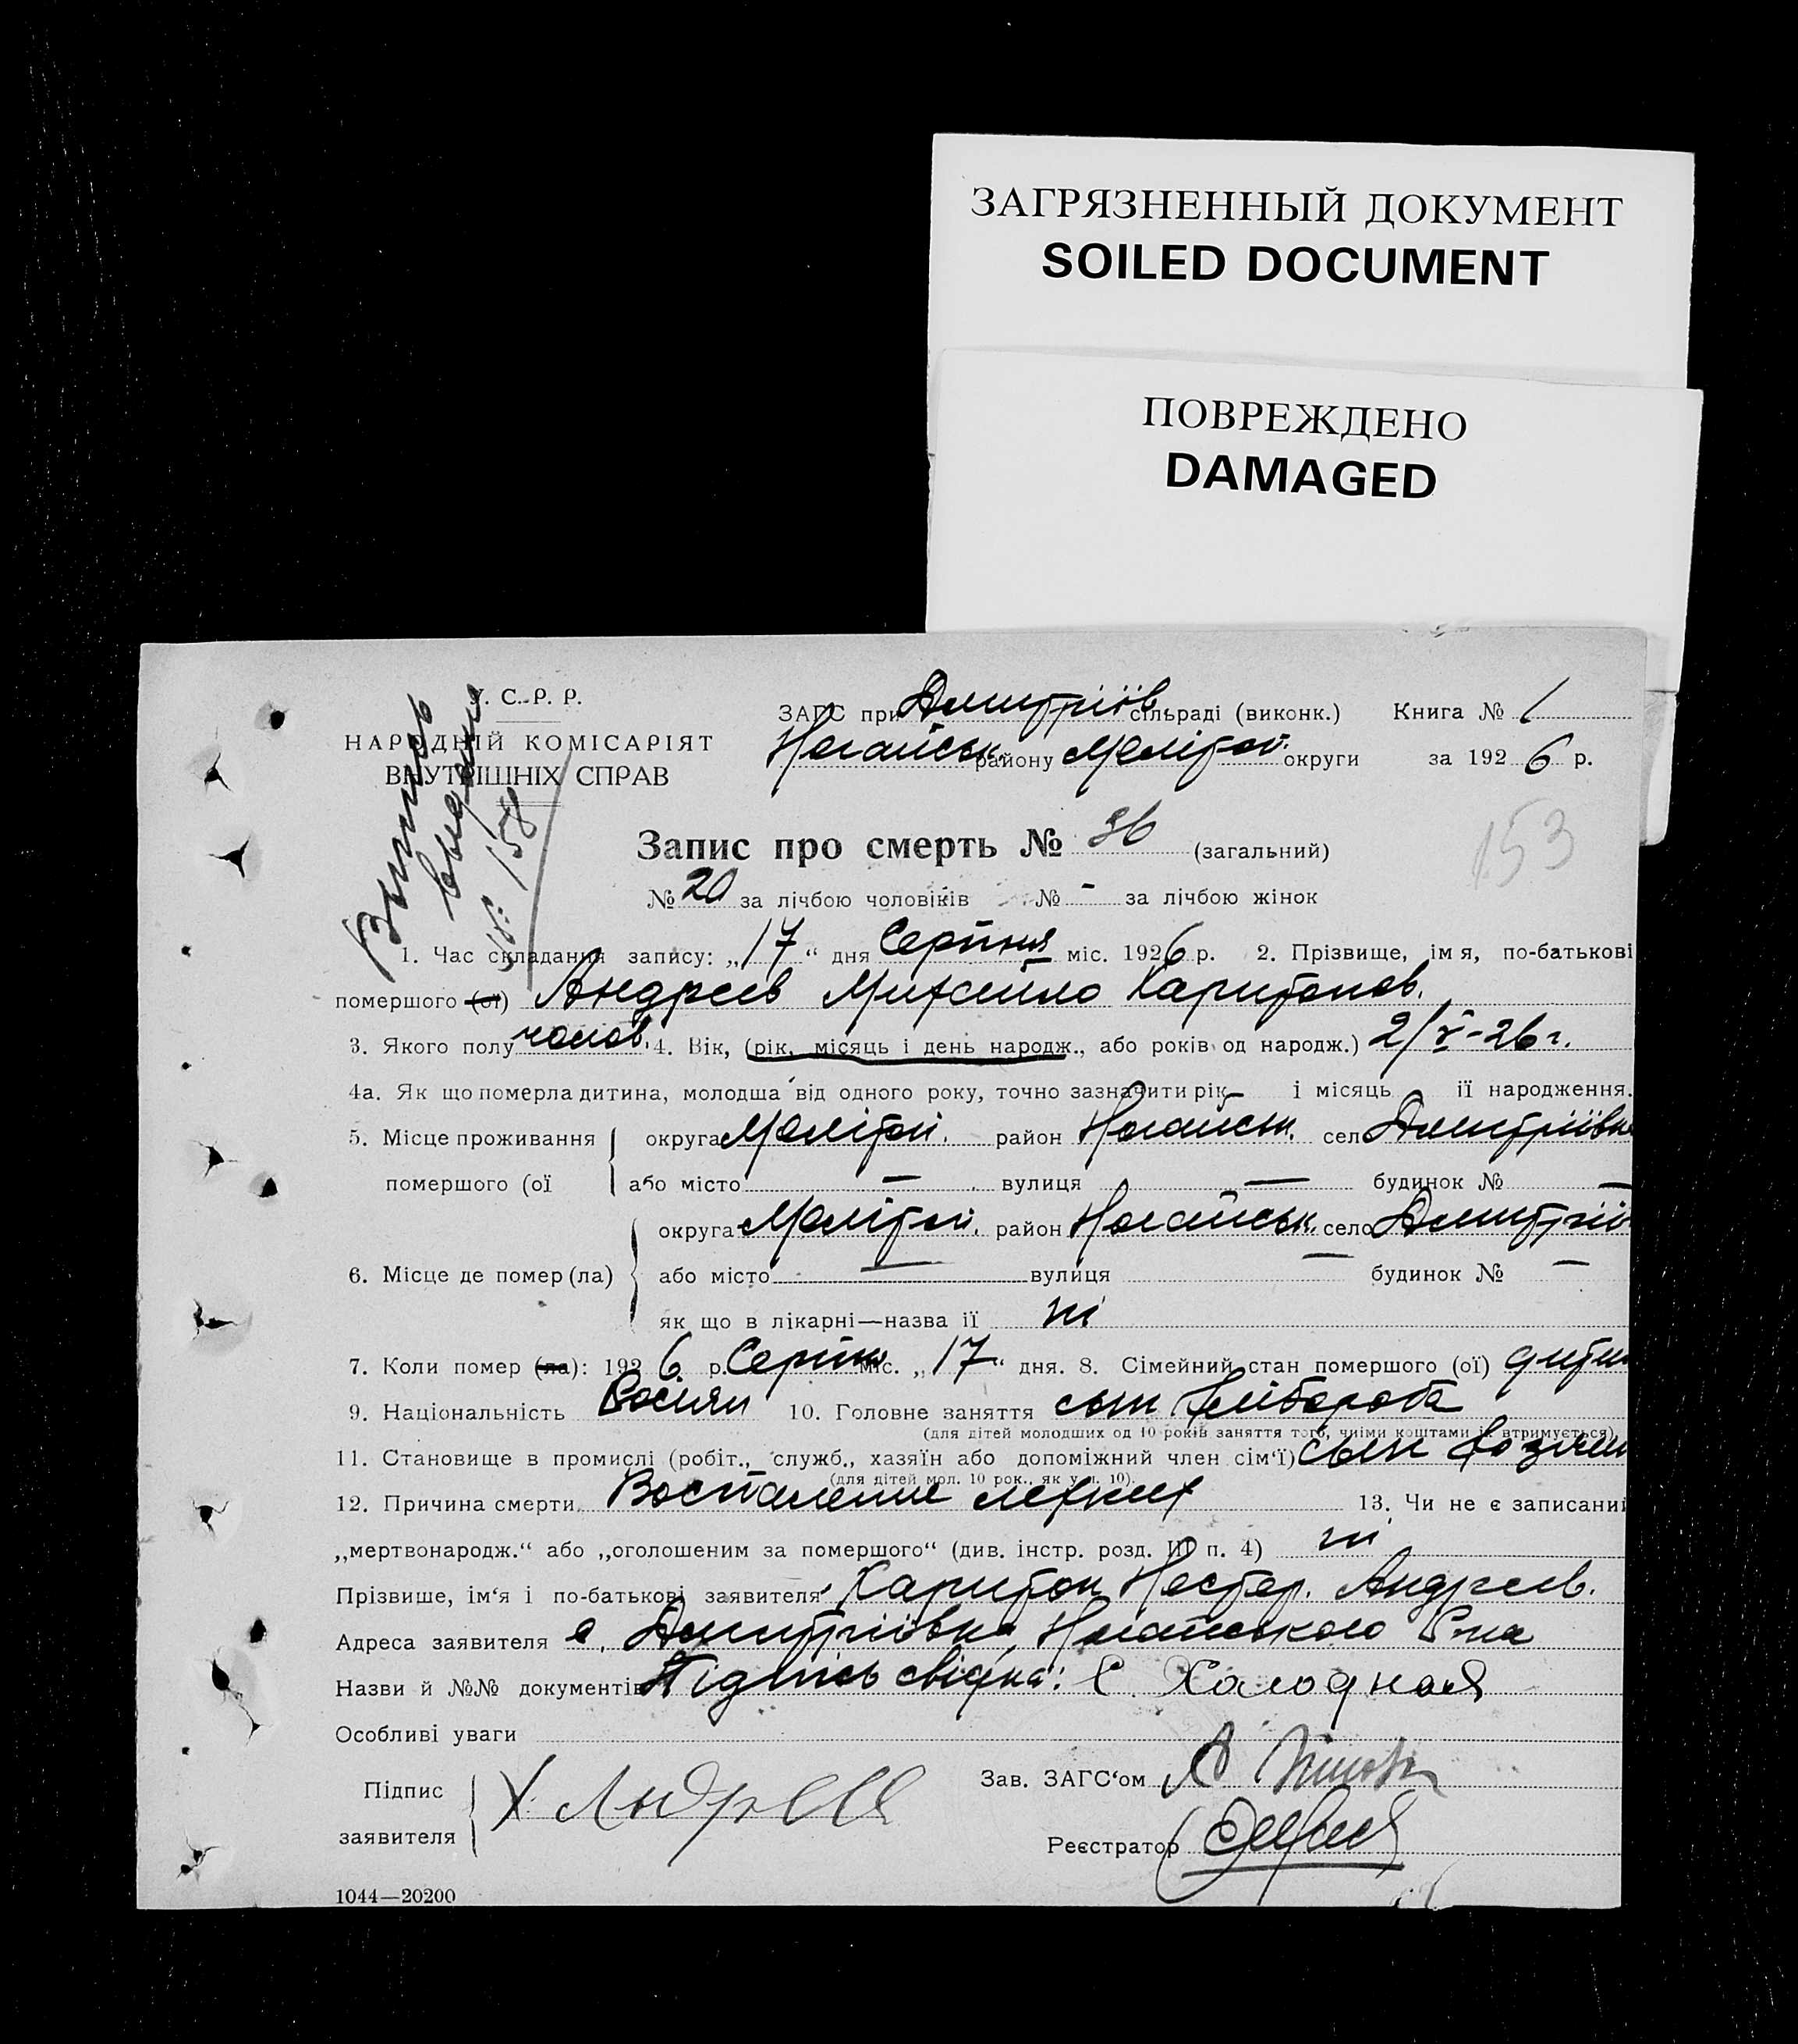 ЗАГРЯЗНЕННЫЙ ДОКУМЕНТ
SOILED DOCUMENT
ПОВРЕЖДЕНО
DAMAGED
У. С. Р. Р.
НАРОДНІЙ КОМІСАРІЯТ
ВНУТРІШНІХ СПРАВ
158
ЗАГС при Дмитріїв. сільраді (виконк.) Книга № 1
Ногайськ. району Мелітоп. округи за 1926 р.
Запис про смерть № 36 (загальний)
153
№ 20 за лічбою чоловіків № - за лічбою жінок
1. Час складання запису: „17“ дня Серпня міс. 1926 р. 2. Прізвище, ім я, по-батькові
помершого (ої) Андреев Михайло Харитонов.
3. Якого полу чолов. 4. Вік, (рік, місяць і день народж., або років од народж.) 2/V-26 г.
4а. Як що померла дитина, молодша від одного року, точно зазначити рік — і місяць її народження.
5. Місце проживання округа Мелітоп. район Ногайськ. село Дмитріївка
помершого (ої або місто — вулиця — будинок № —
округа Мелітоп. район Ногайськ. село Дмитрії
6. Місце де помер (ла) або місто — вулиця — будинок № —
як що в лікарні—назва її ні
7. Коли помер (ла): 1926 р. Серпня міс. „17“ дня. 8. Сімейний стан помершого (ої) дитин
9. Національність Росіян 10. Головне заняття сын хлібороба
(для дітей молодших од 10 років заняття того, чиїми коштами їх втримується)
11. Становище в промислі (робіт., служб., хазяїн або допоміжний член сім‘ї) сын хозяин
(для дітей мол. 10 рок., як у п. 10).
12. Причина смерти Воспаление легких 13. Чи не є записаний
„мертвонародж.“ або „оголошеним за помершого“ (див. інстр. розд. III п. 4) ні
Прізвище, ім‘я і по-батькові заявителя Харитон Нестер. Андреев.
Адреса заявителя с. Дмитріївка Ногайського Р-на
Назви й №№ документів Підпись свідка: Е. Халодная
Особливі уваги
Підпис
заявителя
Х. Андреев
Зав. ЗАГС‘ом
Реєстратор
1044—20200